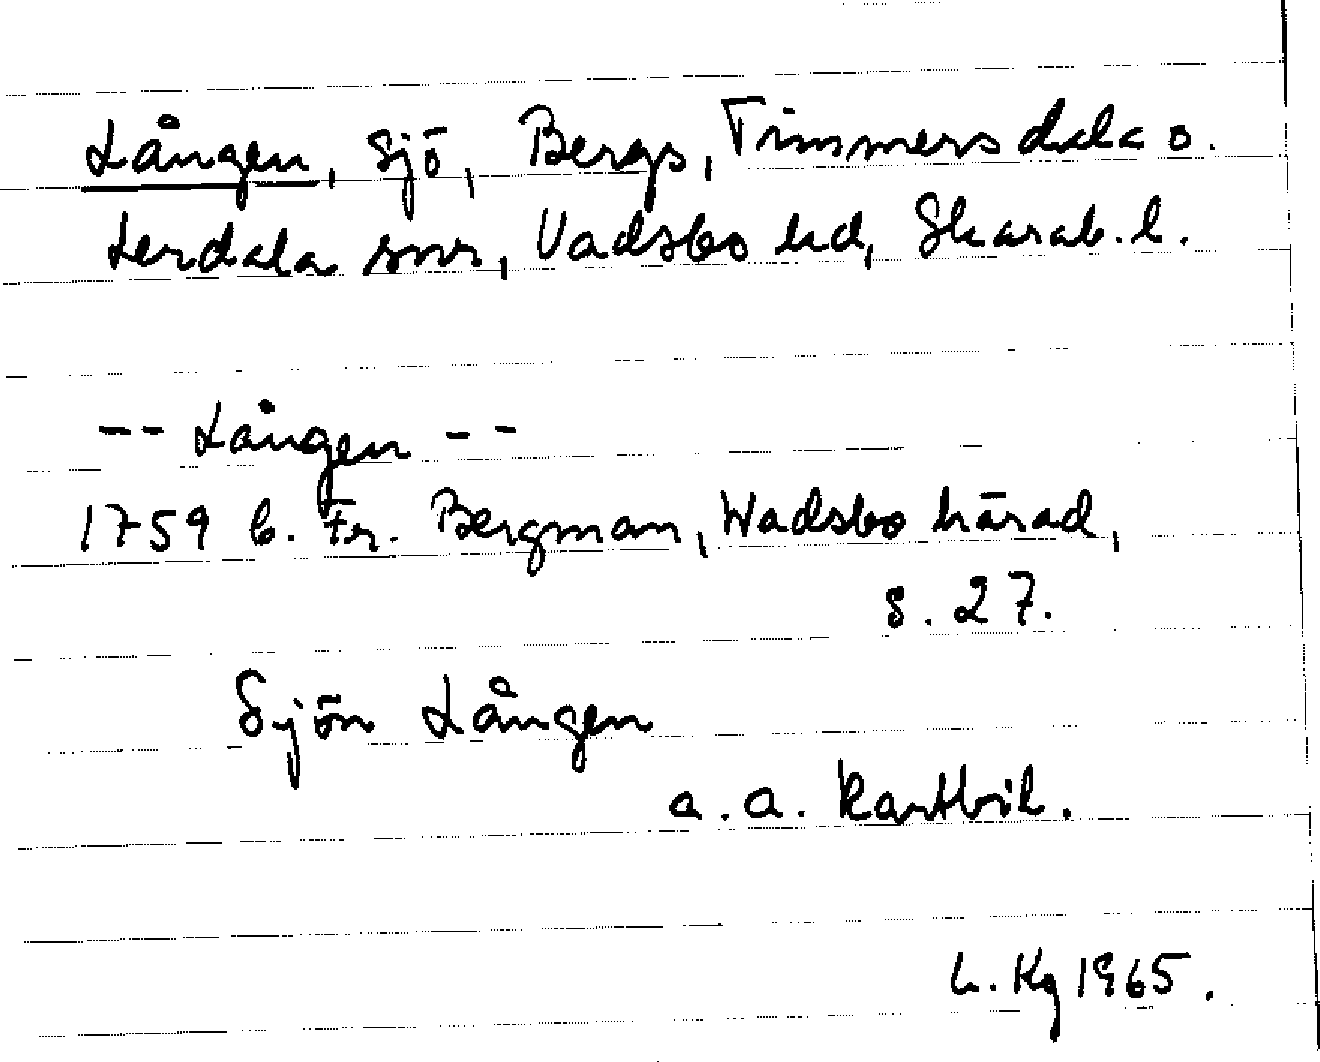 Lången, sjö, Bergs, Timmersdala o.
Lerdala snr, Vadsbo hd, Skarab. l.
-- Lången --
1759 b. Fr. Bergman, Wadsbo härad,
s. 27.
Sjön Lången
a. a. Kartbil.
L. Kg 1965.